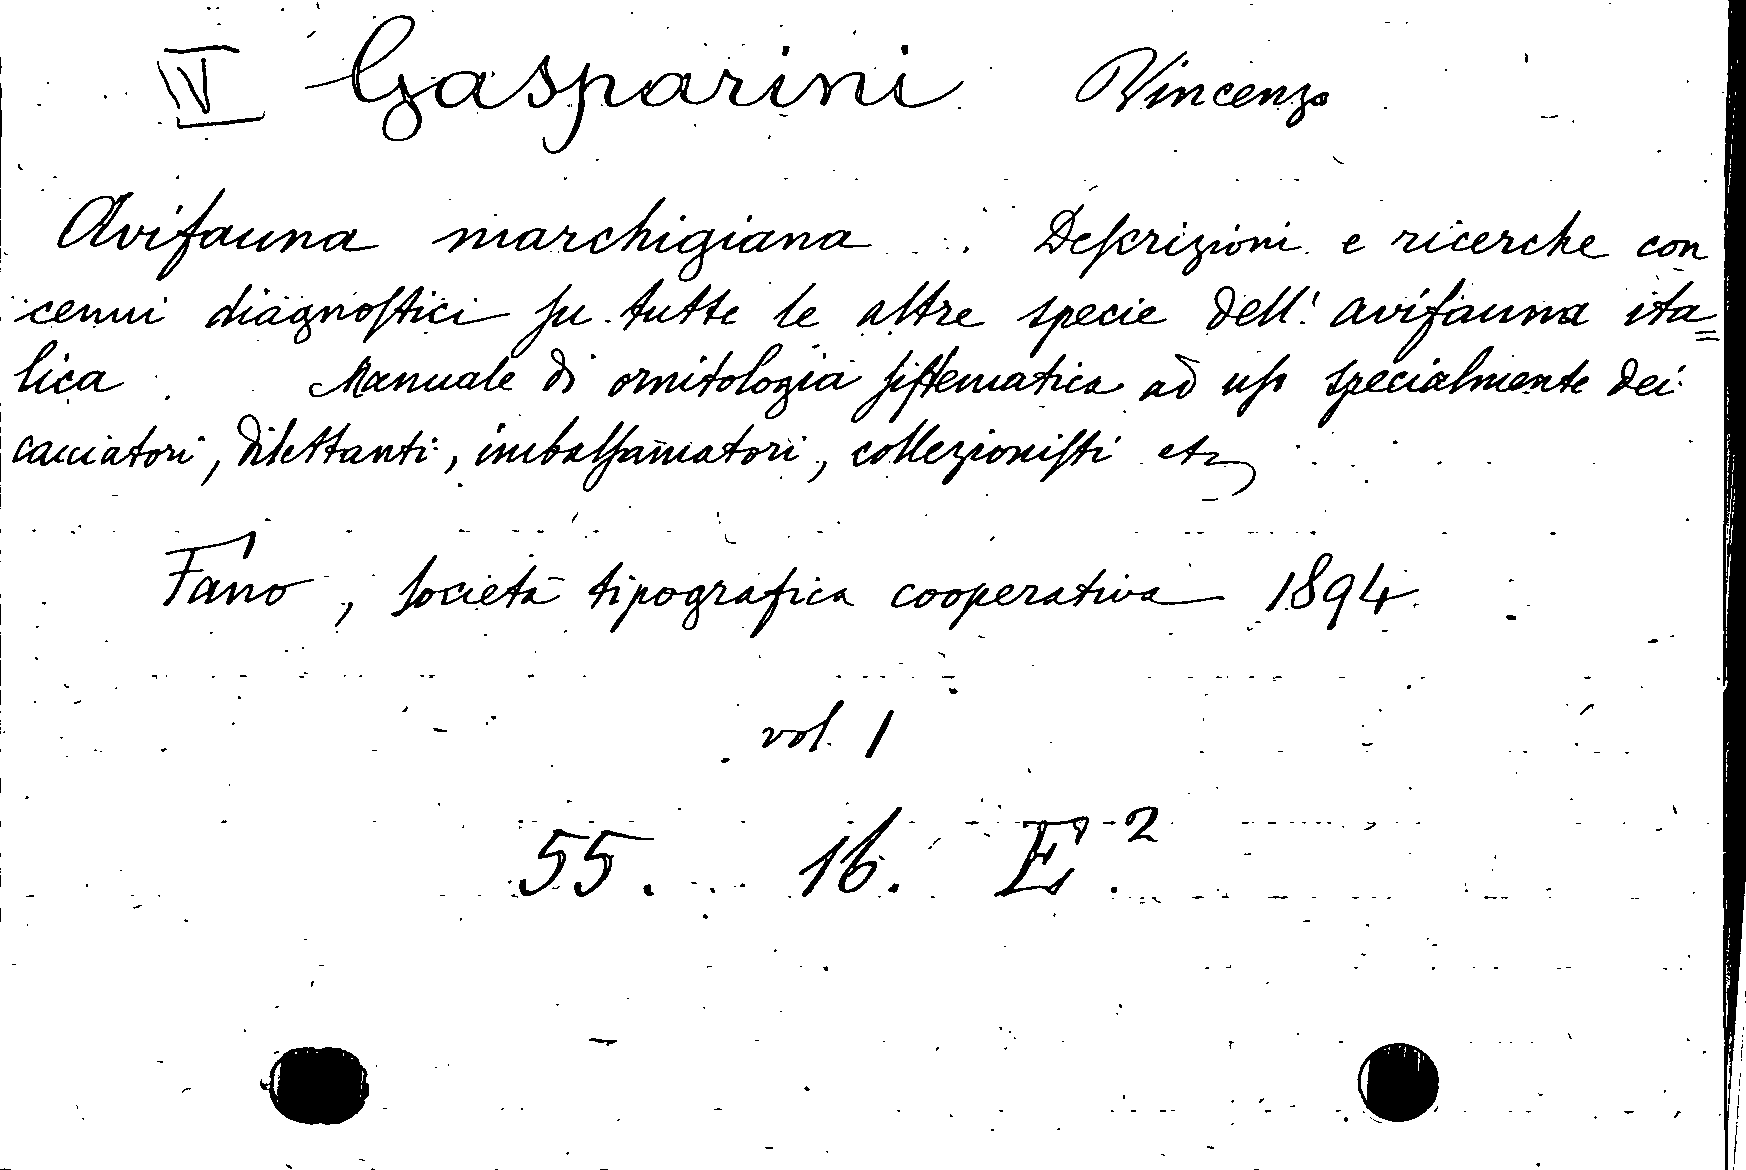 IV Gasparini Vincenzo
Avifauna marchigiana. Descrizioni e ricerche con
cenni diagnostici su tutte le altre specie dell' avifauna ita=
lica. Manuale di ornitologia sistematica ad uso specialmente dei
cacciatori, dilettanti, imbalsamatori, collezionisti etc
Fano, società tipografica cooperativa 1894.
vol. 1
55. 16. E.²